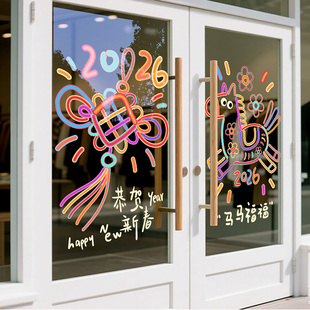 2026
恭贺
新春
happy New Year
2026
"马马福福"